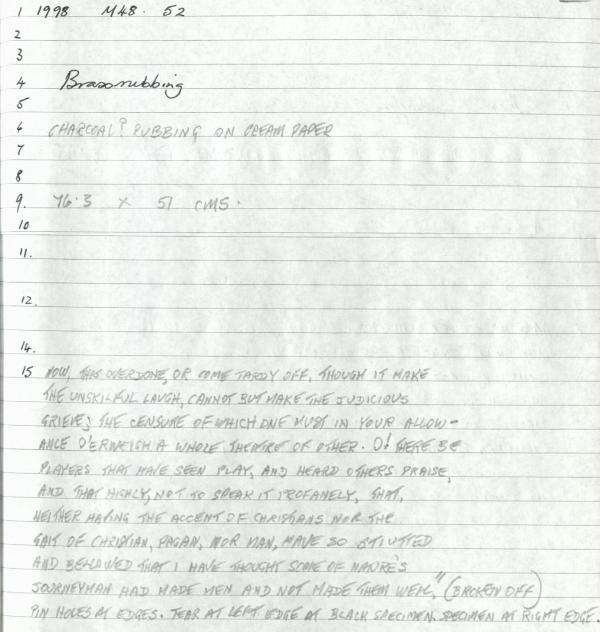 1 1998 M48. 52
2
3
4 Brassrubbing
5
6 CHARCOAL? RUBBING ON CREAM PAPER
7
8
9. 76.3 x 51 CMS.
10
11.
12.
14.
15 NOW, THIS OVERDONE, OR COME TARDY OFF, THOUGH IT MAKE
THE UNSKILFUL LAUGH, CANNOT BUT MAKE THE JUDICIOUS
GRIEVE; THE CENSURE OF WHICH ONE MUST IN YOUR ALLOW-
ANCE O'ERWEIGH A WHOLE THEATRE OF OTHER. O! THERE BE
PLAYERS THAT HAVE SEEN PLAY, AND HEARD OTHERS PRAISE,
AND THAT HIGHLY, NOT TO SPEAK IT PROFANELY, THAT,
NEITHER HAVING THE ACCENT OF CHRISTIANS NOR THE
GAIT OF CHRISTIAN, PAGAN, NOR MAN, HAVE SO STRUTTED
AND BELLOWED THAT I HAVE THOUGHT SOME OF NATURE'S
JOURNEYMAN HAD MADE MEN AND NOT MADE THEM WELL," (BROKEN OFF)
PIN HOLES AT EDGES. TEAR AT LEFT EDGE AT BLACK SPECIMEN. SPECIMEN AT RIGHT EDGE.